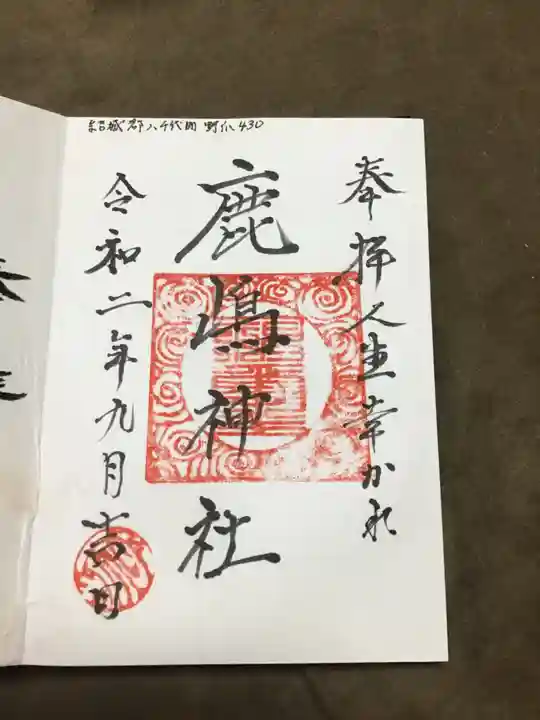 結城郡八千代町野爪430
奉拝人生幸かれ
鹿嶋神社
令和二年九月吉日